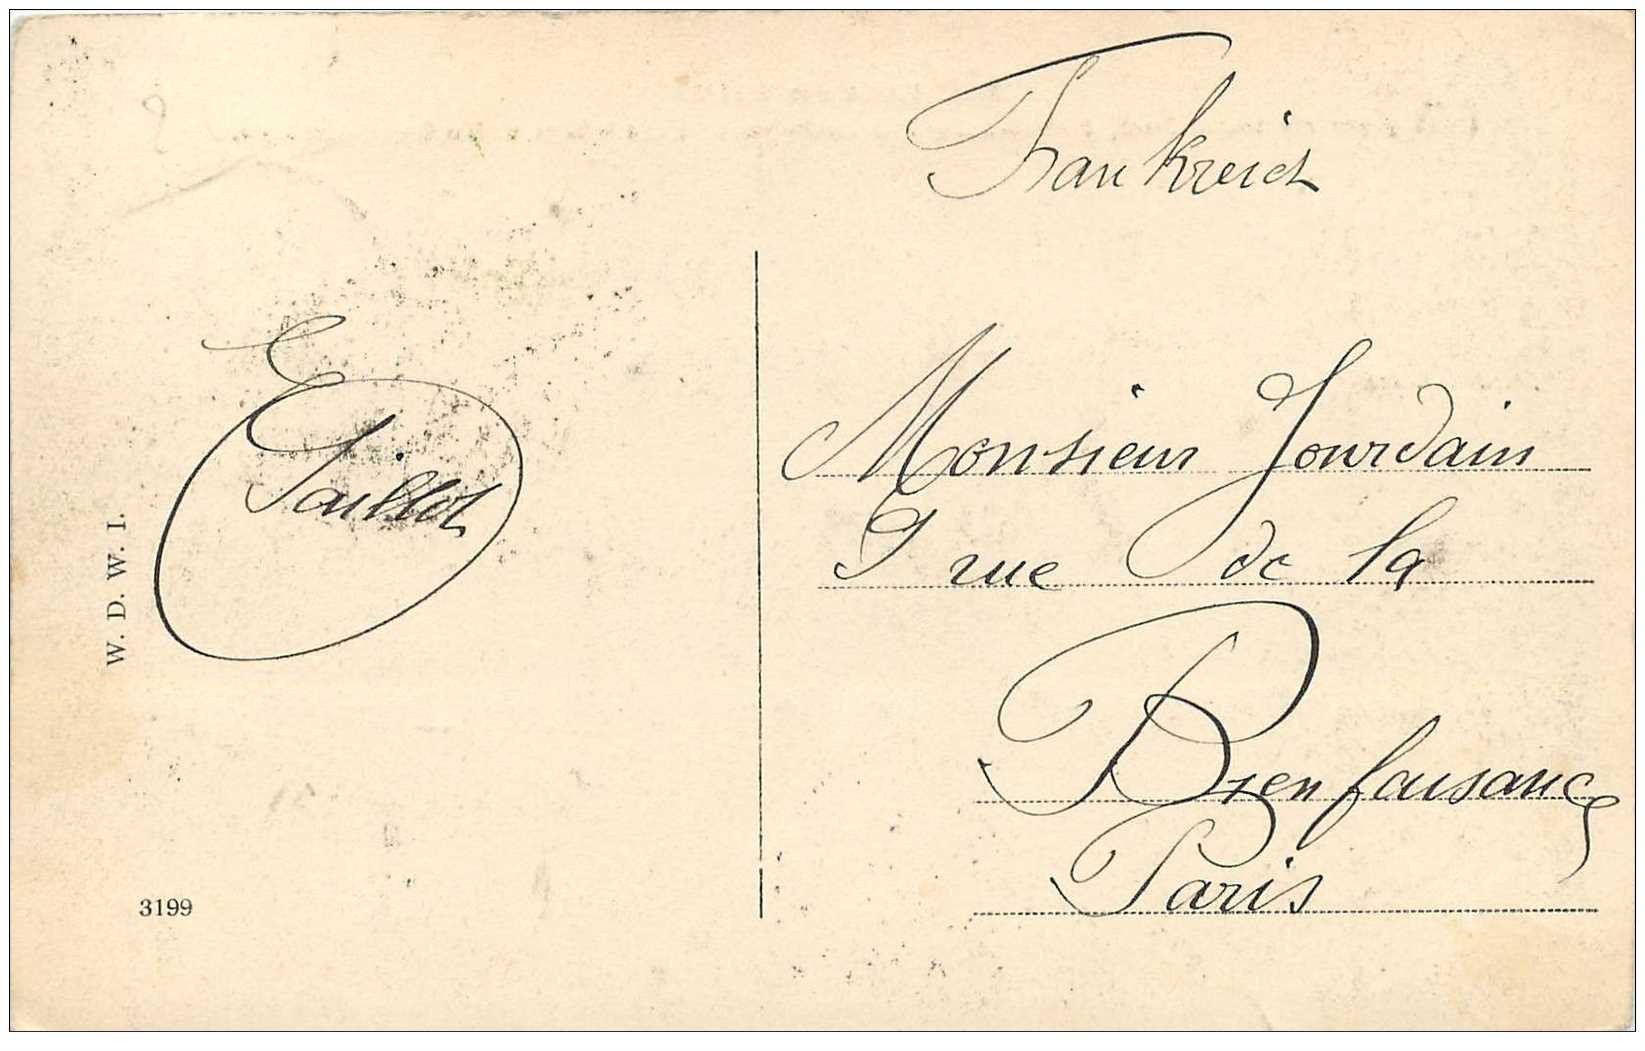 Frankreich
E
Taillot
Monsieur Jourdain
9 rue de la
Bienfaisance
Paris
W. D. W. I.
3199